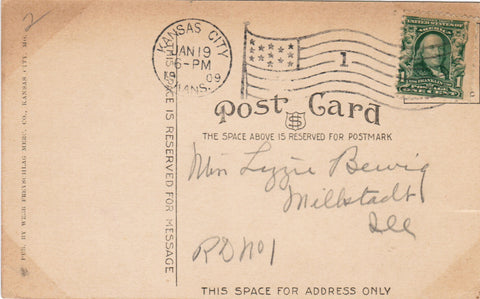 2
KANSAS CITY
JAN 19
6-PM
1909
KANS.
1
UNITED STATES OF AMERICA
FRANKLIN
1 1
CENTS
Post Card
THE SPACE ABOVE IS RESERVED FOR POSTMARK
PUB. BY WEBB FREYSCHLAG MERC. CO., KANSAS CITY, MO.
THIS SPACE IS RESERVED FOR MESSAGE
Miss Lizzie Bewig
Millstadt
Ill
RD No 1
THIS SPACE FOR ADDRESS ONLY